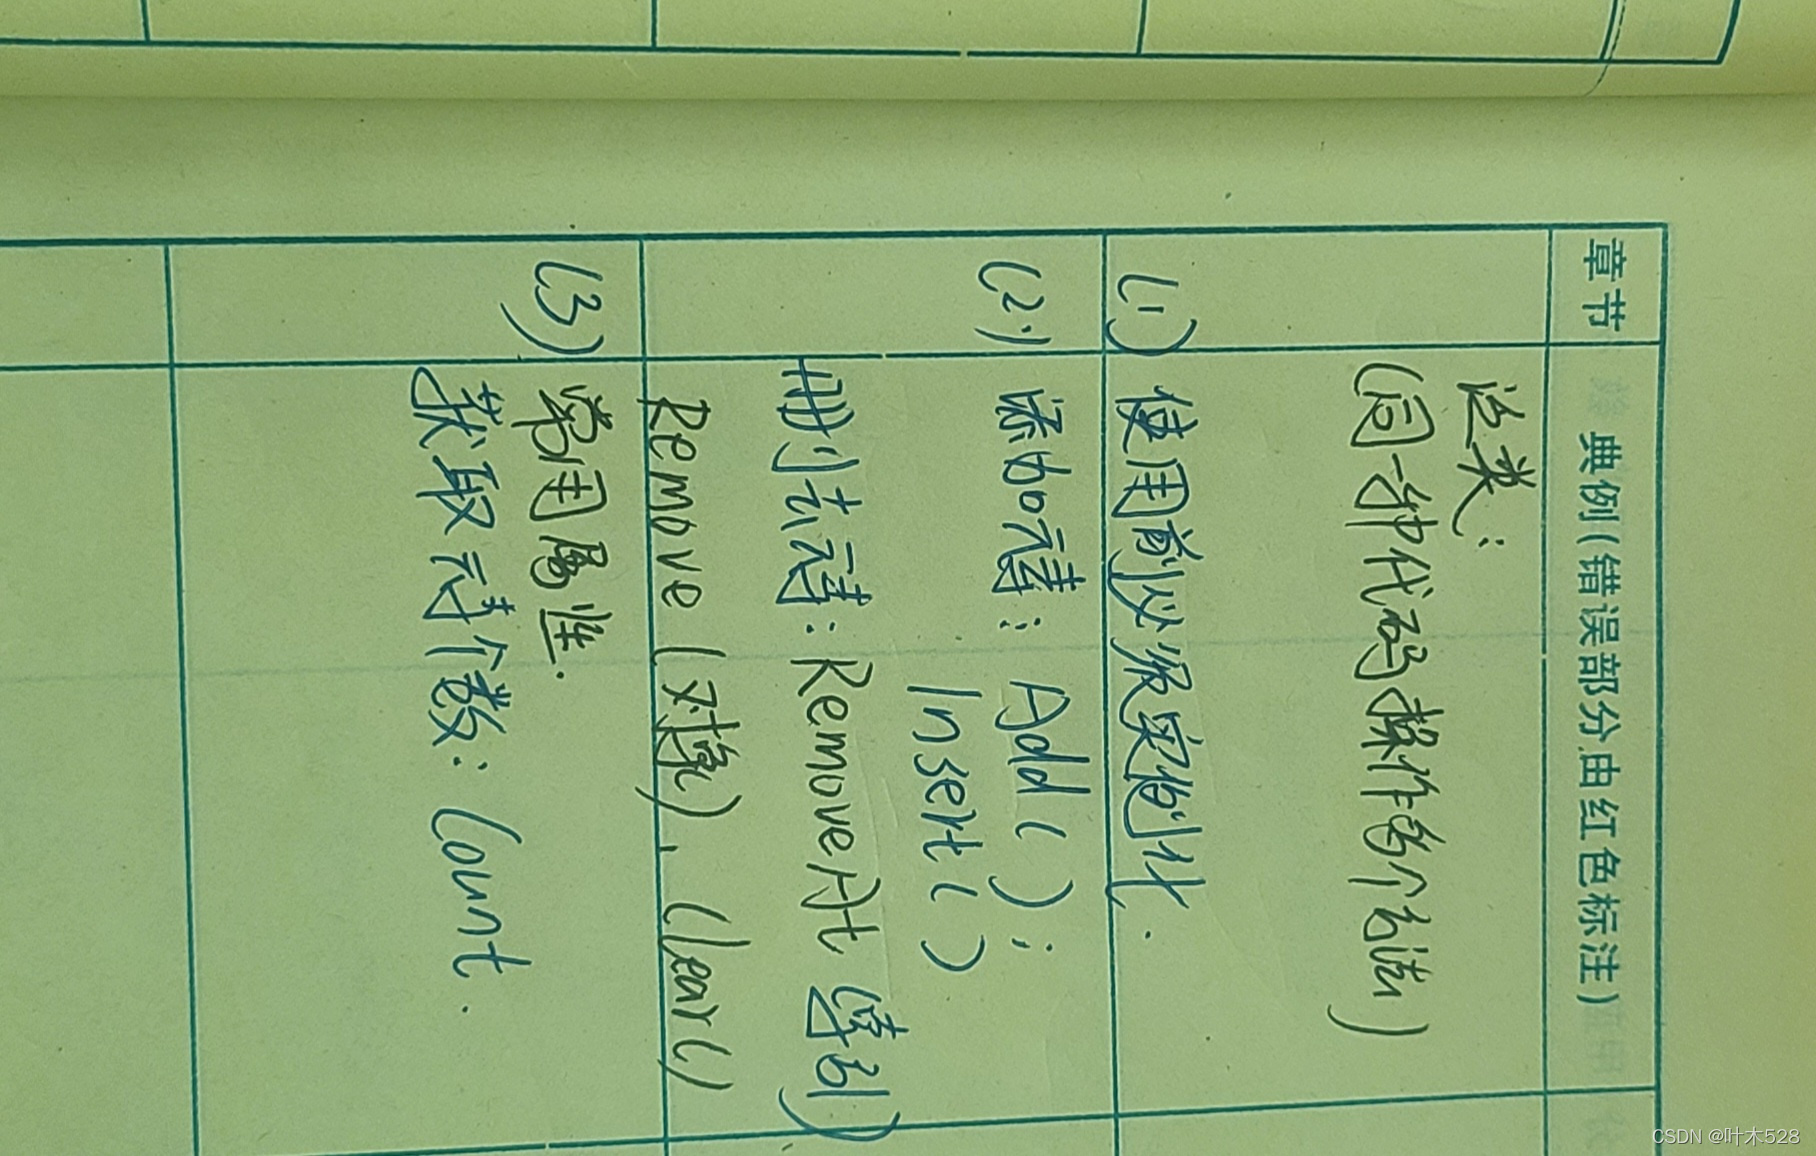 章节
典例(错误部分由红色标注)
泛类:
(同一种代码操作多个方法)
(1) 使用前必须实例化.
(2) 添加元素: Add( );
Insert( )
删去元素: RemoveAt (索引)
Remove (对象), Clear( )
(3) 常用属性.
获取元素个数: Count.
CSDN @叶木528